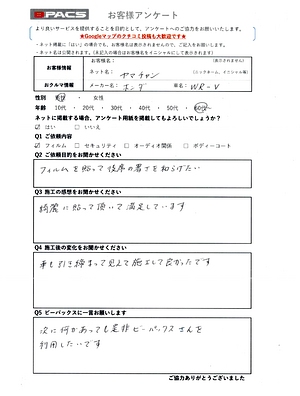 BPACS お客様アンケート
より良いサービスを提供することを目的として、アンケートへのご協力をお願いいたします。
★Googleマップのクチコミ投稿も大歓迎です★
・ネット掲載に「はい」の場合でも、お名前は表示されませんので、ご記入をお願いします。
お客様情報
お名前: (表示されません)
ネット名: ヤマチャン (ニックネーム、イニシャル等)
おクルマ情報
メーカー名: ホンダ 車名: WR-V
性別 男性 ・ 女性
年齢 10代 ・ 20代 ・ 30代 ・ 40代 ・ 50代 ・ 60代~
ネットに掲載する場合、アンケート用紙を掲載してもよろしいでしょうか?
☑ はい □ いいえ
Q1 ご依頼内容
☑ フィルム □ セキュリティ □ オーディオ関係 □ ボディーコート
Q2 ご依頼目的をお聞かせください
フィルムを貼って後席の暑さを和らげたい
Q3 施工の感想をお聞かせください
綺麗に貼って頂いて満足しています
Q4 施工後の変化をお聞かせください
車も引き締まって見えて施工して良かったです
Q5 ビーパックスに一言お願いします
次に何かあっても是非ビーパックスさんを
利用したいです
ご協力ありがとうございました